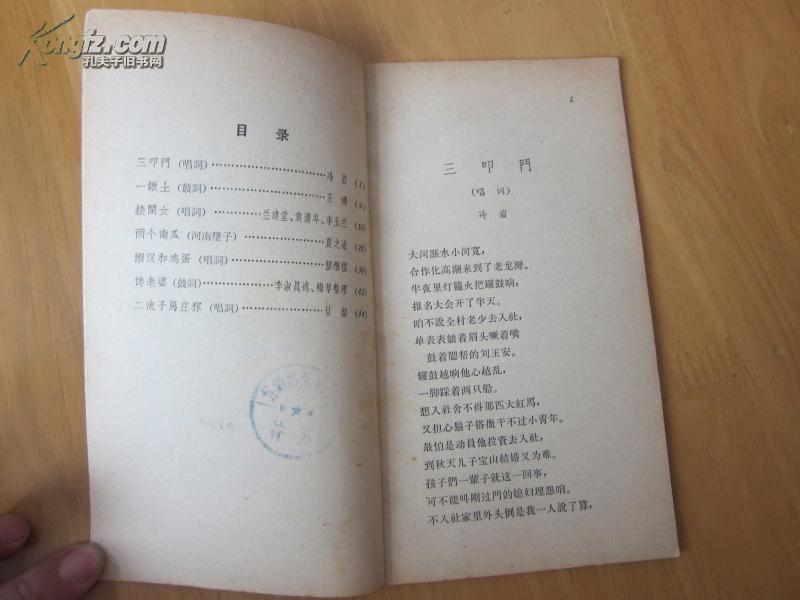 Kongfz.com
孔夫子旧书网
目 录
三叩門 (唱詞)……………………冷 岩 (1)
一鍬土 (鼓詞)……………………王 (9)
接閨女 (唱詞)…………兰建堂、袁清岑、李玉兰
两个南瓜 (河南墜子)……………夏之冰
懒汉和鸡蛋 (唱詞)………………張継楼
馋老婆 (鼓詞)…………李淑眞述、梅草整理
二流子駡庄稼 (唱詞)……………
1
三 叩 門
(唱 词)
冷 岩
大河漲水小河寬，
合作化高潮来到了老龙灣。
半夜里灯籠火把鑼鼓响，
报名大会开了半天。
咱不說全村老少去入社，
单表表皺着眉头噘着嘴
鼓着腮帮的刘玉安。
鑼鼓越响他心越乱，
一脚踩着两只船。
想入社舍不得那匹大紅馬，
又担心鬍子搭撒干不过小青年。
最怕是动員他投資去入社，
到秋天儿子宝山結婚又为难。
孩子們一輩子就这一回事，
可不能叫剛过門的媳妇埋怨咱。
不入社家里外头倒是我一人說了算，